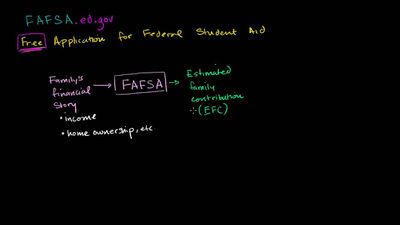 FAFSA.ed.gov
Free Application for Federal Student Aid
Family's
financial
story
• income
• home ownership, etc
FAFSA
Estimated
family
contribution
(EFC)